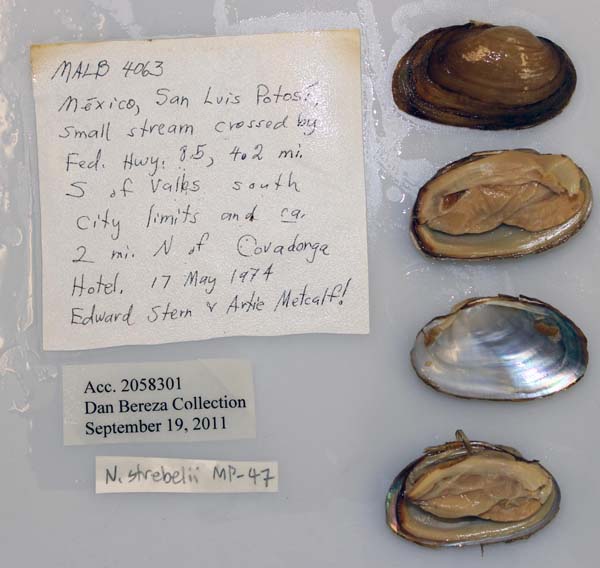 MALB 4063
México, San Luis Potosí,
Small stream crossed by
Fed. Hwy. 85, 4.2 mi.
S of Valles south
city limits and ca.
2 mi. N of Covadonga
Hotel. 17 May 1974
Edward Stern & Artie Metcalf!
Acc. 2058301
Dan Bereza Collection
September 19, 2011
N. strebelii MP-47